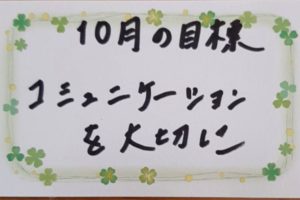 10月の目標
コミュニケーション
を大切に